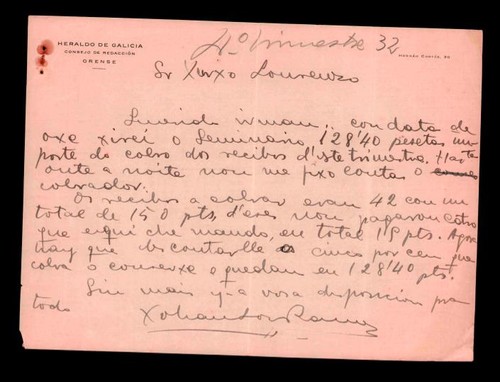 HERALDO DE GALICIA
CONSEJO DE REDACCIÓN
ORENSE
HERNÁN CORTÉS, 20
4º Trimestre 32
Sr Xurxo Lourenzo
Querido irman: con data de
oxe xirei o Seminario 128'40 pesetas im-
porte do cobro dos recibos d'iste trimestre. Hasta
onte a noite non me fixo contas o
cobrador.
Os recibos a cobrar eran 42 con un
total de 150 pts, d'eles non pagaron catro
que eiquí che mando, en total 15 pts. Agora
hay que descontarlle o cinco por cen que
cobra o conserxe e quedan en 128'40 pts.
Sin mais y-a vosa disposición pra
todo
Xohan